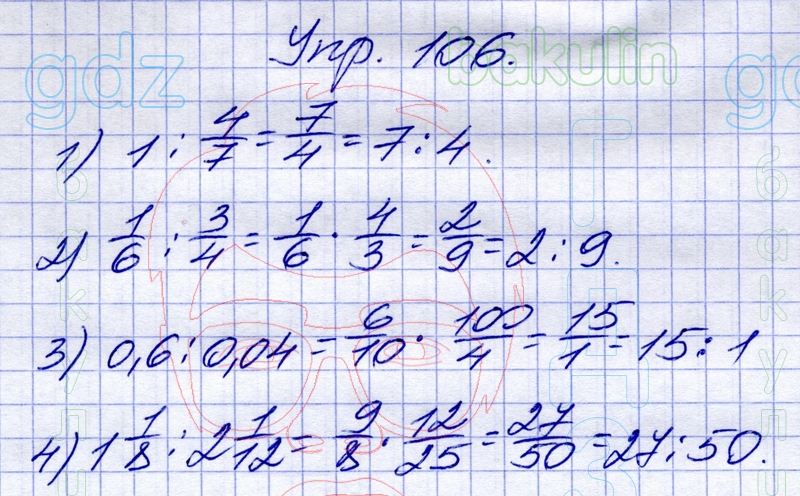 Упр. 106.
1) 1 : 4/7 = 7/4 = 7 : 4.
2) 1/6 : 3/4 = 1/6 · 4/3 = 2/9 = 2 : 9.
3) 0,6 : 0,04 = 6/10 · 100/4 = 15/1 = 15 : 1
4) 1 1/8 : 2 1/12 = 9/8 · 12/25 = 27/50 = 27 : 50.
gdz
bakulin